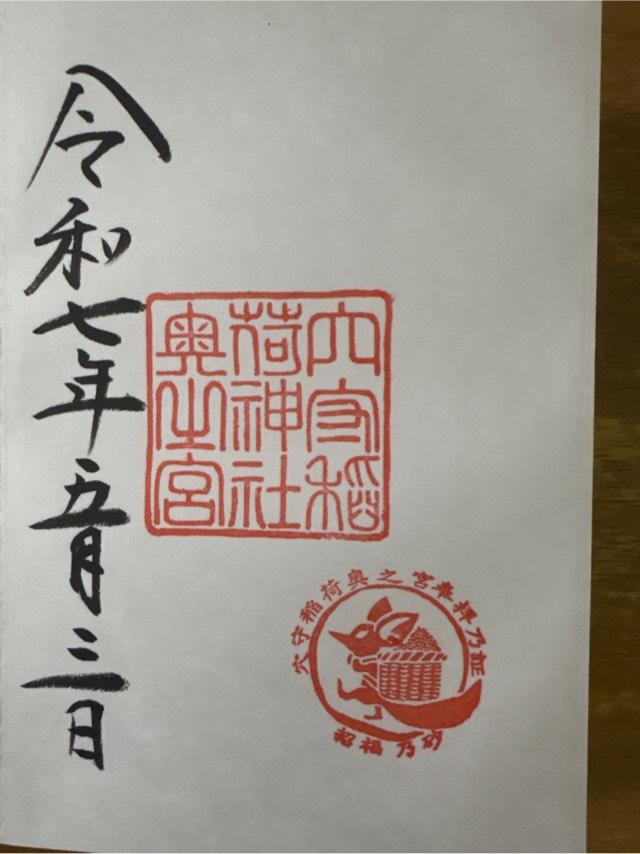 令和七年五月三日
穴守稲
荷神社
奥之宮
穴守稲荷奥之宮奉拝乃証
招福乃砂